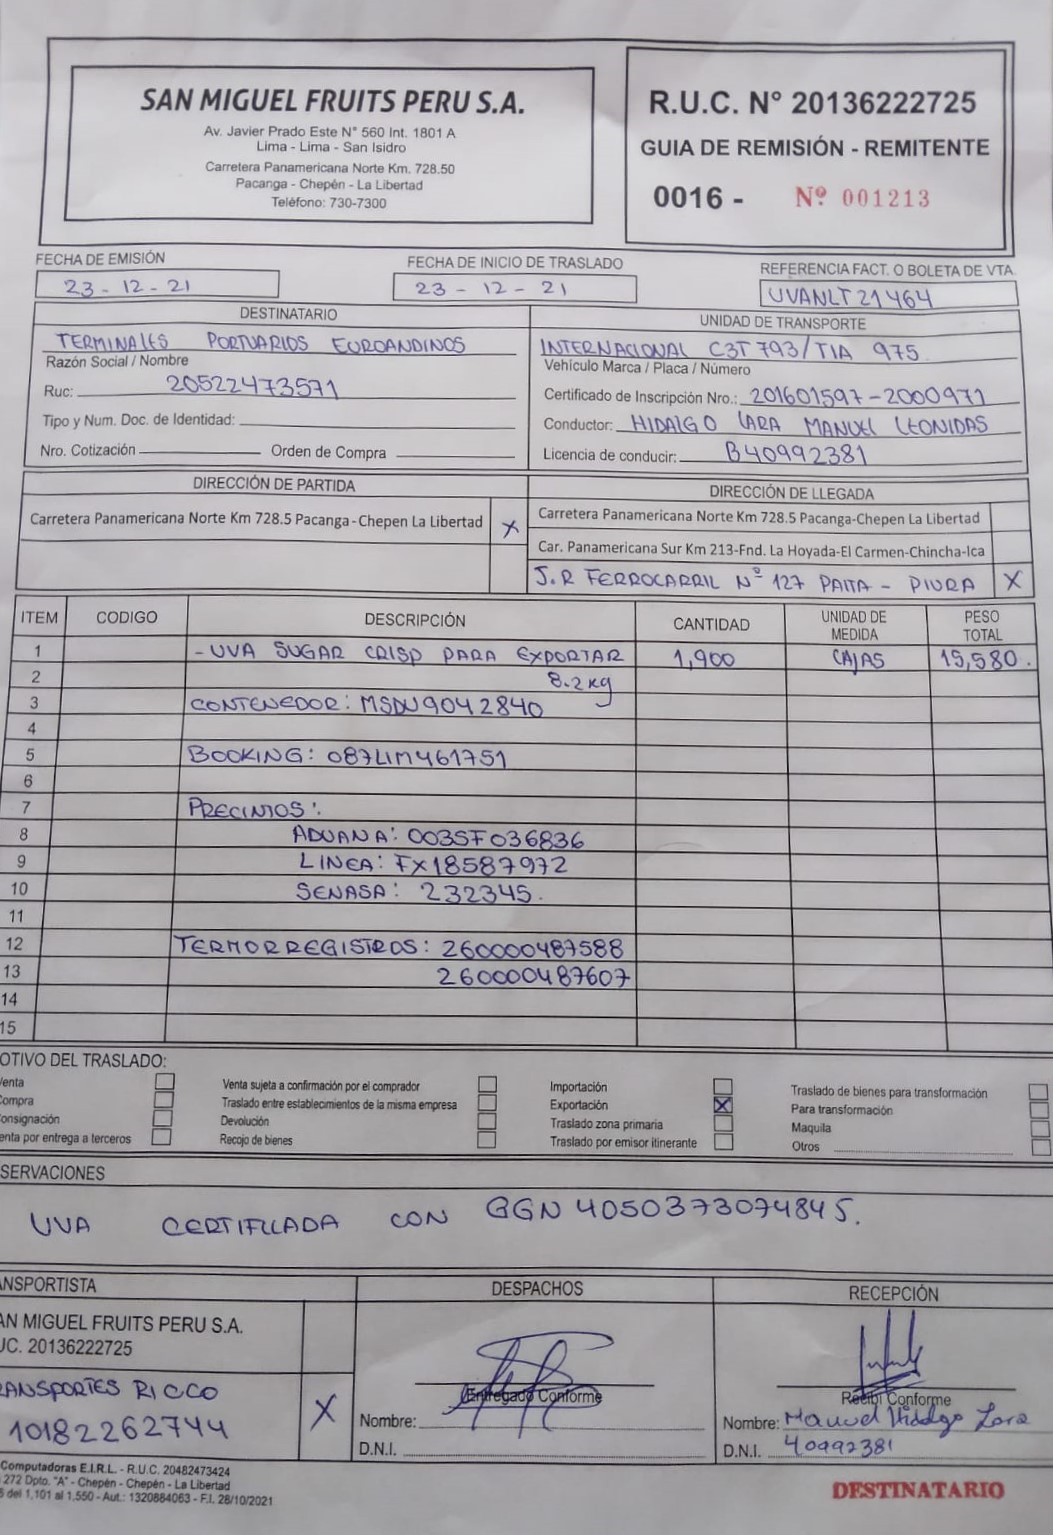 SAN MIGUEL FRUITS PERU S.A.
Av. Javier Prado Este N° 560 Int. 1801 A
Lima - Lima - San Isidro
Carretera Panamericana Norte Km. 728.50
Pacanga - Chepén - La Libertad
Teléfono: 730-7300
R.U.C. N° 20136222725
GUIA DE REMISIÓN - REMITENTE
0016 - Nº 001213
FECHA DE EMISIÓN
23 - 12 - 21
FECHA DE INICIO DE TRASLADO
23 - 12 - 21
REFERENCIA FACT. O BOLETA DE VTA
UVANLT 21464
DESTINATARIO
TERMINALES PORTUARIOS EUROANDINOS
Razón Social / Nombre
Ruc: 20522473571
Tipo y Num. Doc. de Identidad:
Nro. Cotización Orden de Compra
UNIDAD DE TRANSPORTE
INTERNACIONAL C3T 793/TIA 975
Vehículo Marca / Placa / Número
Certificado de Inscripción Nro.: 201601597-2000971
Conductor: HIDALGO LARA MANUEL LEONIDAS
Licencia de conducir: B40992381
DIRECCIÓN DE PARTIDA
Carretera Panamericana Norte Km 728.5 Pacanga-Chepen La Libertad X
DIRECCIÓN DE LLEGADA
Carretera Panamericana Norte Km 728.5 Pacanga-Chepen La Libertad
Car. Panamericana Sur Km 213-Fnd. La Hoyada-El Carmen-Chincha-Ica
J.R FERROCARRIL Nº 127 PAITA - PIURA X
ITEM CODIGO DESCRIPCIÓN CANTIDAD UNIDAD DE MEDIDA PESO TOTAL
1 - UVA SUGAR CRISP PARA EXPORTAR 1,900 CAJAS 15,580.
2 8.2 kg
3 CONTENEDOR: MSDU9042840
4
5 BOOKING: 087LIM461751
6
7 PRECINTOS:
8 ADUANA: 003SF036836
9 LINEA: FX18587972
10 SENASA: 232345.
11
12 TERMORREGISTROS: 260000487588
13 260000487607
14
15
OTIVO DEL TRASLADO:
enta
ompra
onsignación
enta por entrega a terceros
Venta sujeta a confirmación por el comprador
Traslado entre establecimientos de la misma empresa
Devolución
Recojo de bienes
Importación
Exportación X
Traslado zona primaria
Traslado por emisor itinerante
Traslado de bienes para transformación
Para transformación
Maquila
Otros
SERVACIONES
UVA CERTIFICADA CON GGN 4050373074845.
ANSPORTISTA
AN MIGUEL FRUITS PERU S.A.
UC. 20136222725
RANSPORTES RICCO
10182262744 X
DESPACHOS
Entregado Conforme
Nombre:
D.N.I.
RECEPCIÓN
Recibi Conforme
Nombre: Manuel Hidalgo Lara
D.N.I. 40992381
Computadoras E.I.R.L. - R.U.C. 20482473424
272 Dpto. "A" - Chepén - Chepén - La Libertad
del 1,101 al 1,550 - Aut.: 1320884063 - F.I. 28/10/2021
DESTINATARIO